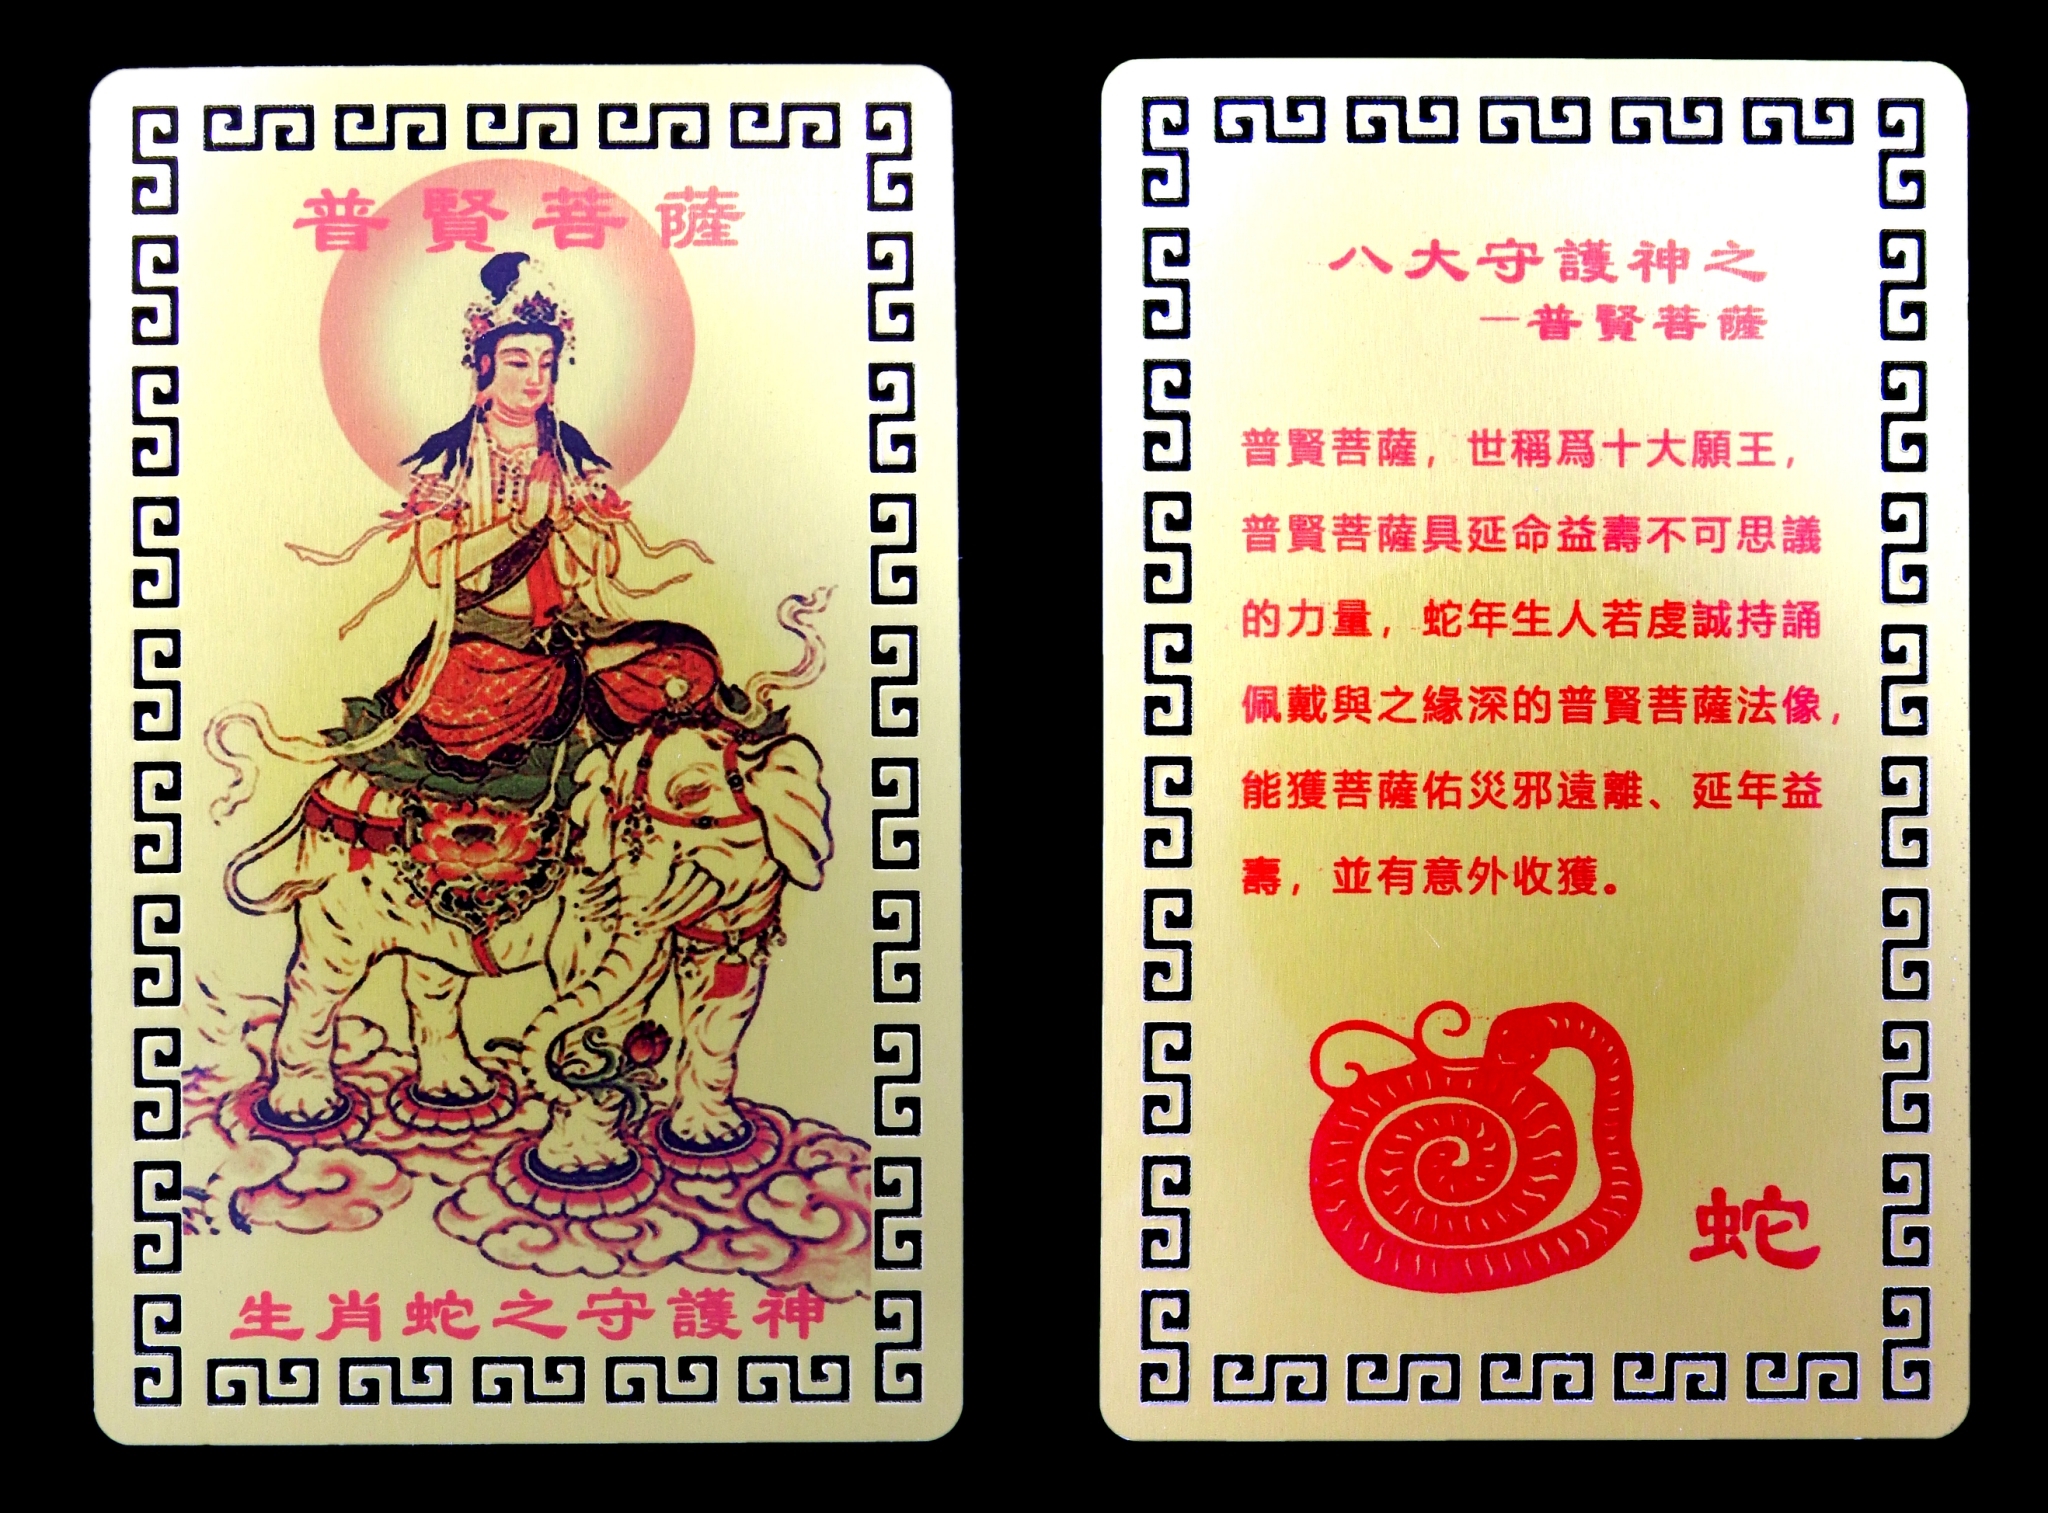 普賢菩薩
生肖蛇之守護神
八大守護神之
—普賢菩薩
普賢菩薩，世稱爲十大願王，
普賢菩薩具延命益壽不可思議
的力量，蛇年生人若虔誠持誦
佩戴與之緣深的普賢菩薩法像，
能獲菩薩佑災邪遠離、延年益
壽，並有意外收獲。
蛇